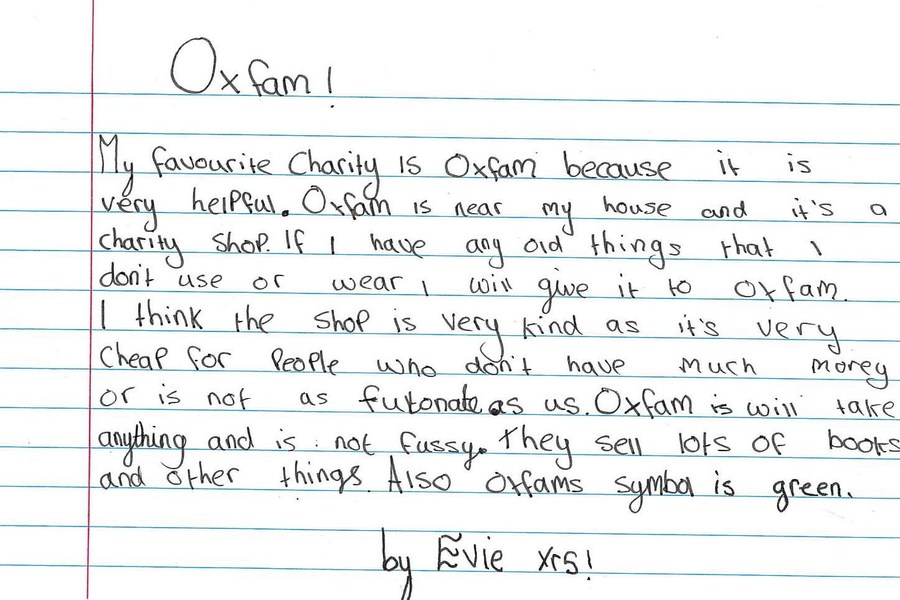 Oxfam!
My favourite Charity is Oxfam because it is
very helpful. Oxfam is near my house and it's a
charity shop. If I have any old things that I
don't use or wear I will give it to Oxfam.
I think the shop is very kind as it's very
cheap for people who don't have much money
or is not as futonate as us. Oxfam is will take
anything and is not fussy. They sell lots of books
and other things. Also Oxfams symbol is green.
by Evie yrs!